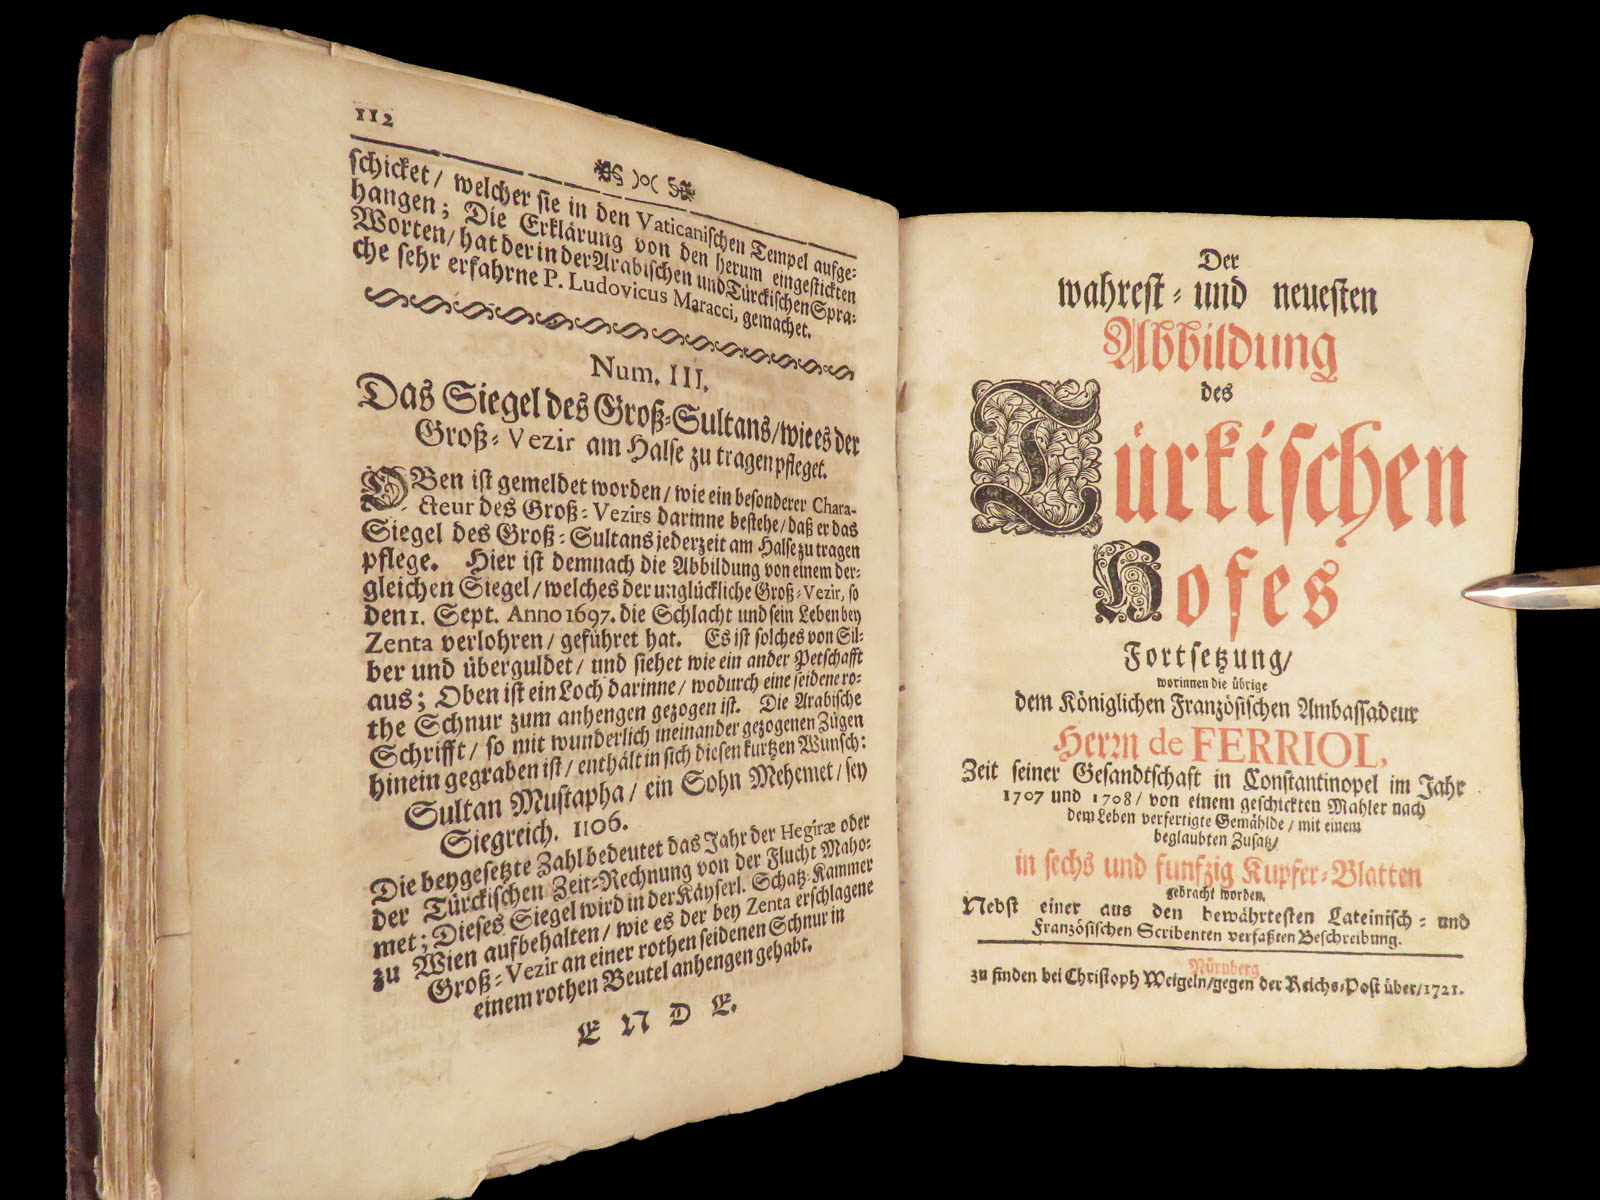 112
schicket/ welcher sie in den Vaticanischen Tempel aufge-
hangen; Die Erklärung von den herum eingestickten
Worten/ hat der in der Arabischen und Türckischen Spra-
che sehr erfahrne P. Ludovicus Maracci, gemachet.
Num. III.
Das Siegel des Groß-Sultans/ wie es der
Groß-Vezir am Halse zu tragen pfleget.
OBen ist gemeldet worden/ wie ein besonderer Chara-
cteur des Groß-Vezirs darinne bestehe/ daß er das
Siegel des Groß-Sultans jederzeit am Halse zu tragen
pflege. Hier ist demnach die Abbildung von einem der-
gleichen Siegel/ welches der unglückliche Groß-Vezir, so
den 1. Sept. Anno 1697. die Schlacht und sein Leben bey
Zenta verlohren/ geführet hat. Es ist solches von Sil-
ber und überguldet/ und siehet wie ein ander Petschafft
aus; Oben ist ein Loch darinne/ wodurch eine seidene ro-
the Schnur zum anhengen gezogen ist. Die Arabische
Schrifft/ so mit wunderlich ineinander gezogenen Zügen
hinein gegraben ist/ enthält in sich diesen kurtzen Wunsch:
Sultan Mustapha/ ein Sohn Mehemet/ sey
Siegreich. 1106.
Die beygesetzte Zahl bedeutet das Jahr der Hegiræ oder
der Türckischen Zeit-Rechnung von der Flucht Maho-
met; Dieses Siegel wird in der Käyserl. Schatz-Kammer
zu Wien aufbehalten/ wie es der bey Zenta erschlagene
Groß-Vezir an einer rothen seidenen Schnur in
einem rothen Beutel anhengen gehabt.
ENDE.
Der
wahrest- und neuesten
Abbildung
des
Türkischen
Hofes
Fortsetzung/
worinnen die übrige
dem Königlichen Französischen Ambassadeur
Herrn de FERRIOL,
Zeit seiner Gesandtschaft in Constantinopel im Jahr
1707 und 1708/ von einem geschickten Mahler nach
dem Leben verfertigte Gemählde/ mit einem
beglaubten Zusatz/
in sechs und funfzig Kupfer-Blatten
gebracht worden.
Nebst einer aus den bewährtesten Lateinisch- und
Französischen Scribenten verfaßten Beschreibung.
Nürnberg
zu finden bei Christoph Weigeln/ gegen der Reichs-Post über/ 1721.